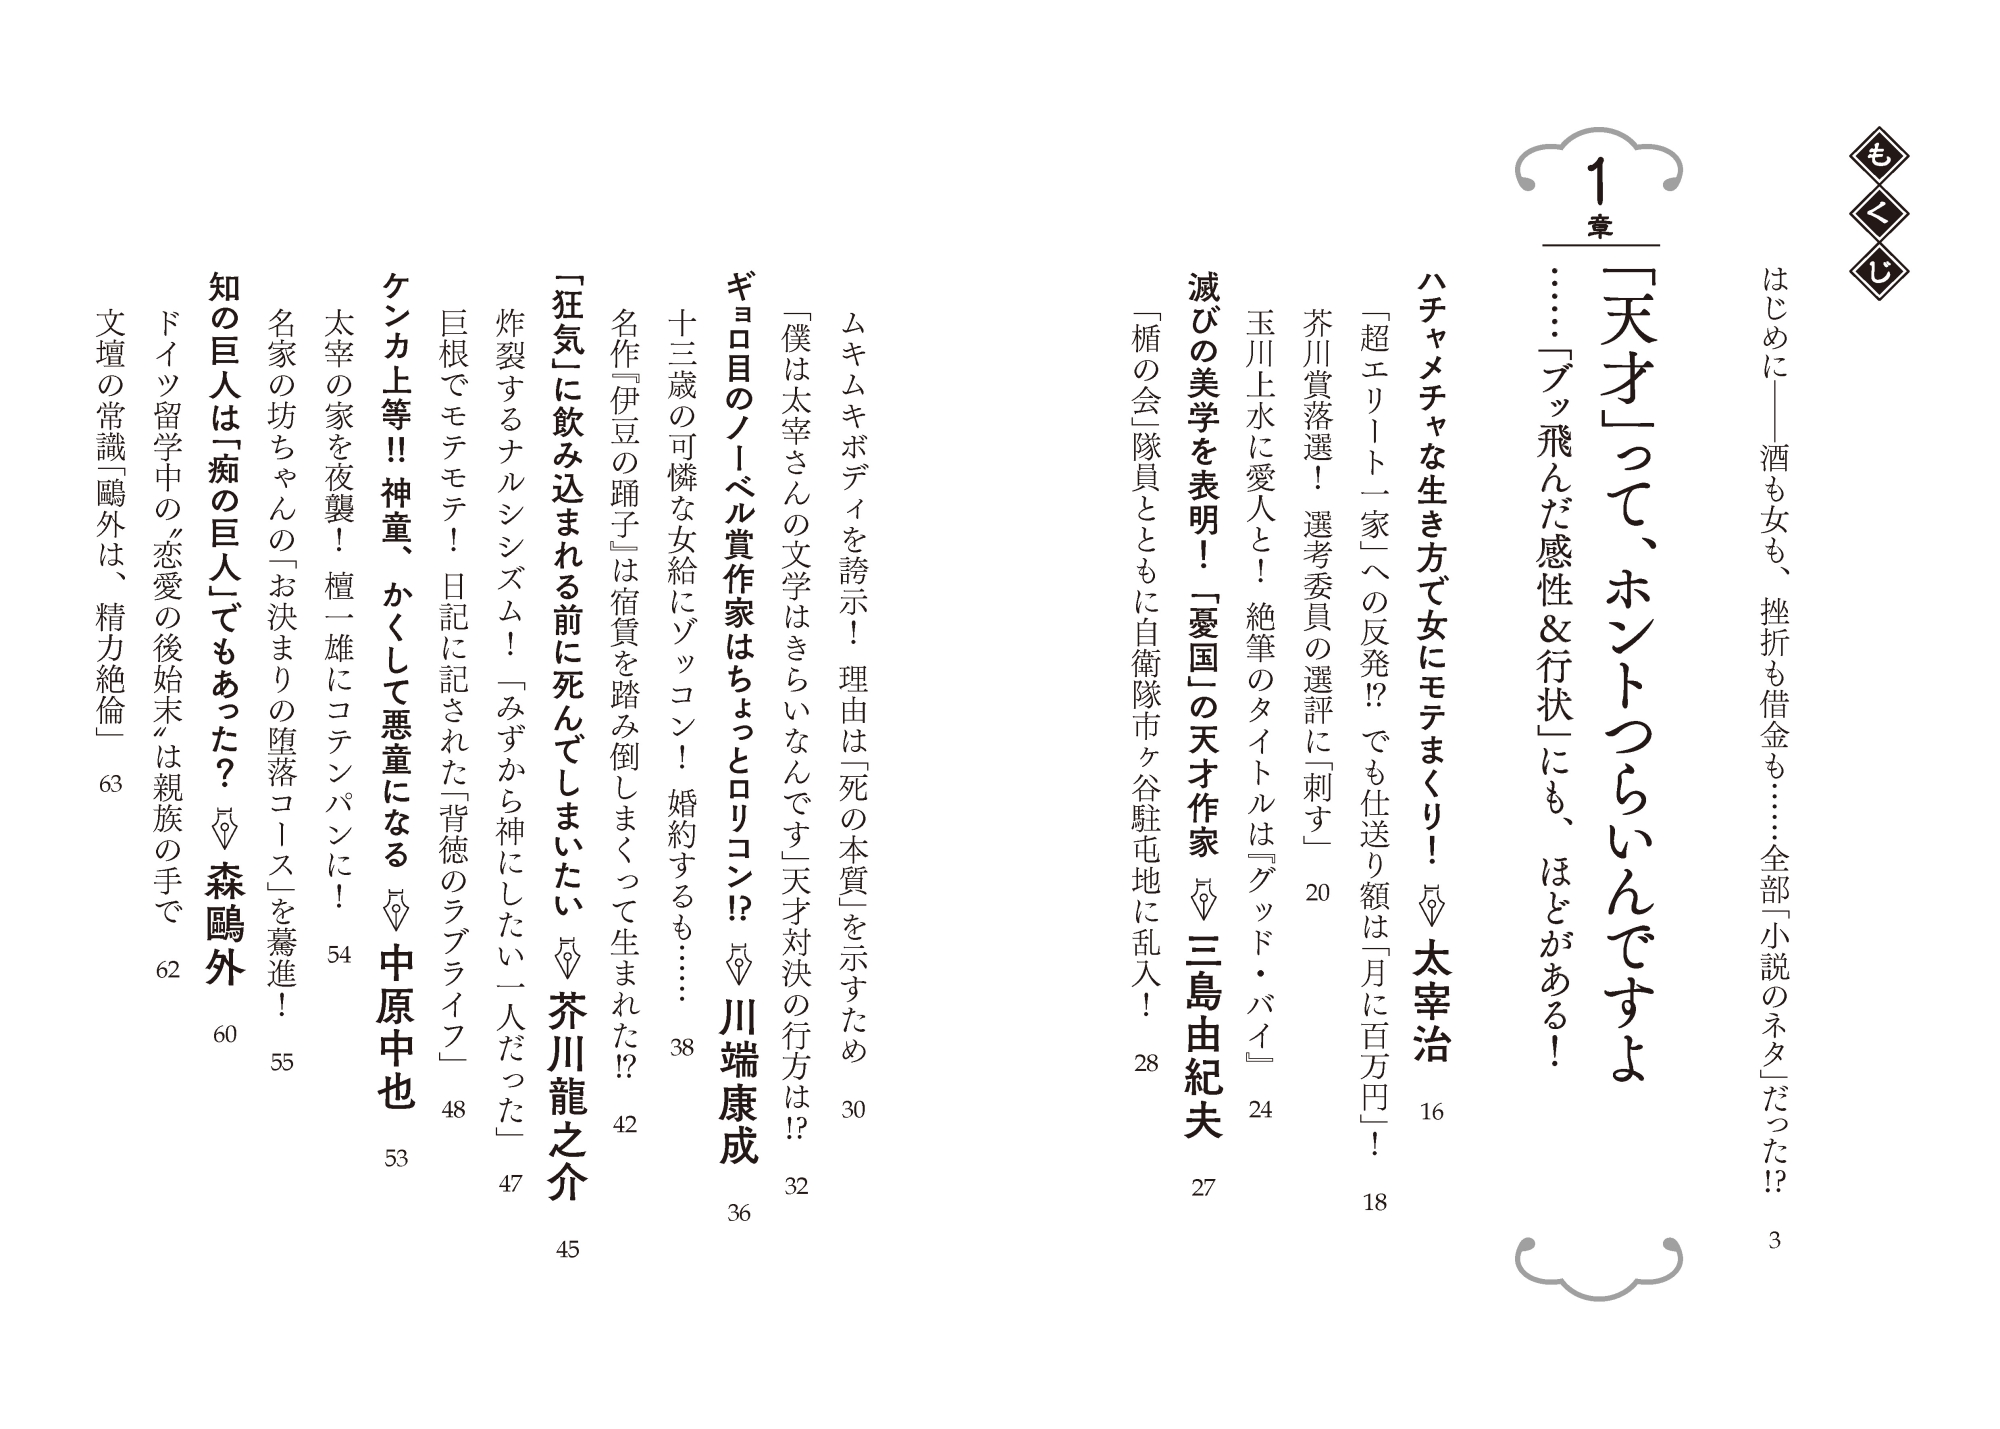 もくじ
はじめに――酒も女も、挫折も借金も……全部「小説のネタ」だった!? 3
1章
「天才」って、ホントつらいんですよ
……「ブッ飛んだ感性＆行状」にも、ほどがある！
ハチャメチャな生き方で女にモテまくり！ 太宰治 16
「超エリート一家」への反発!? でも仕送り額は「月に百万円」！ 18
芥川賞落選！ 選考委員の選評に「刺す」 20
玉川上水に愛人と！ 絶筆のタイトルは『グッド・バイ』 24
滅びの美学を表明！「憂国」の天才作家 三島由紀夫 27
「楯の会」隊員とともに自衛隊市ヶ谷駐屯地に乱入！ 28
ムキムキボディを誇示！ 理由は「死の本質」を示すため 30
「僕は太宰さんの文学はきらいなんです」天才対決の行方は!? 32
ギョロ目のノーベル賞作家はちょっとロリコン!? 川端康成 36
十三歳の可憐な女給にゾッコン！ 婚約するも…… 38
名作『伊豆の踊子』は宿賃を踏み倒しまくって生まれた!? 42
「狂気」に飲み込まれる前に死んでしまいたい 芥川龍之介 45
炸裂するナルシシズム！「みずから神にしたい一人だった」 47
巨根でモテモテ！ 日記に記された「背徳のラブライフ」 48
ケンカ上等!! 神童、かくして悪童になる 中原中也 53
太宰の家を夜襲！ 檀一雄にコテンパンに！ 54
名家の坊ちゃんの「お決まりの堕落コース」を驀進！ 55
知の巨人は「痴の巨人」でもあった？ 森鷗外 60
ドイツ留学中の〝恋愛の後始末〟は親族の手で 62
文壇の常識「鷗外は、精力絶倫」 63